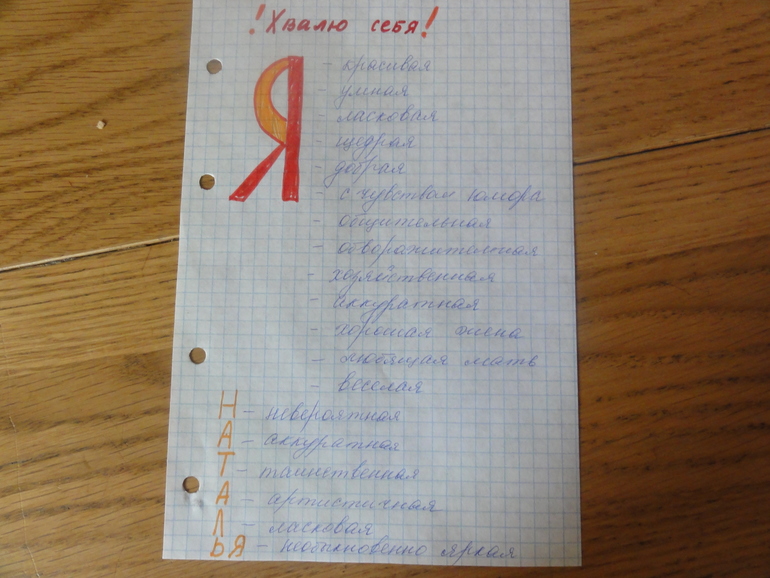 ! Хвалю себя!
Я
- красивая
- умная
- ласковая
- щедрая
- добрая
- с чувством юмора
- общительная
- обворожителтная
- хозяйственная
- аккуратная
- хорошая жена
- любящая мать
- веселая
Н - невероятная
А - аккуратная
Т - таинственная
А - артистичная
Л - ласковая
ЬЯ - необыкновенно яркая